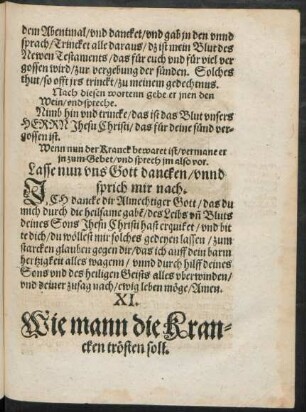 dem Abentmal/vnd dancket/vnd gab jn den vnnd
sprach/Trincket alle daraus/dz ist mein Blut des
Newen Testaments/das für euch vnd für viel ver
gossen wird/zur vergebung der sünden. Solches
thut/so offt jrs trinckt/zu meinem gedechtnus.
Nach diesen wortenn gebe er jnen den
Wein/vnd spreche.
Nimb hin vnd trincke/das ist das Blut vnsers
HERRN Jhesu Christi/das für deine sünd ver-
gossen ist.
Wenn nun der Kranck bewaret ist/vermane er
jn zum Gebet/vnd sprech jm also vor.
Lasse nun vns Gott dancken/vnnd
sprich mir nach.
ICH dancke dir Almechtiger Gott/das du
mich durch die heilsame gabe/des Leibs vñ Bluts
deines Sons Jhesu Christi hast erquicket/vnd bit
te dich/du wöllest mir solches gedeyen lassen/zum
starcken glauben gegen dir/das ich auff dein barm
hertzigkeit alles wagenn/vnnd durch hilff deines
Sons vnd des heiligen Geists alles vberwinden/
vnd deiner zusag nach/ewig leben möge/Amen.
XI.
Wie mann die Kran-
cken trösten soll.